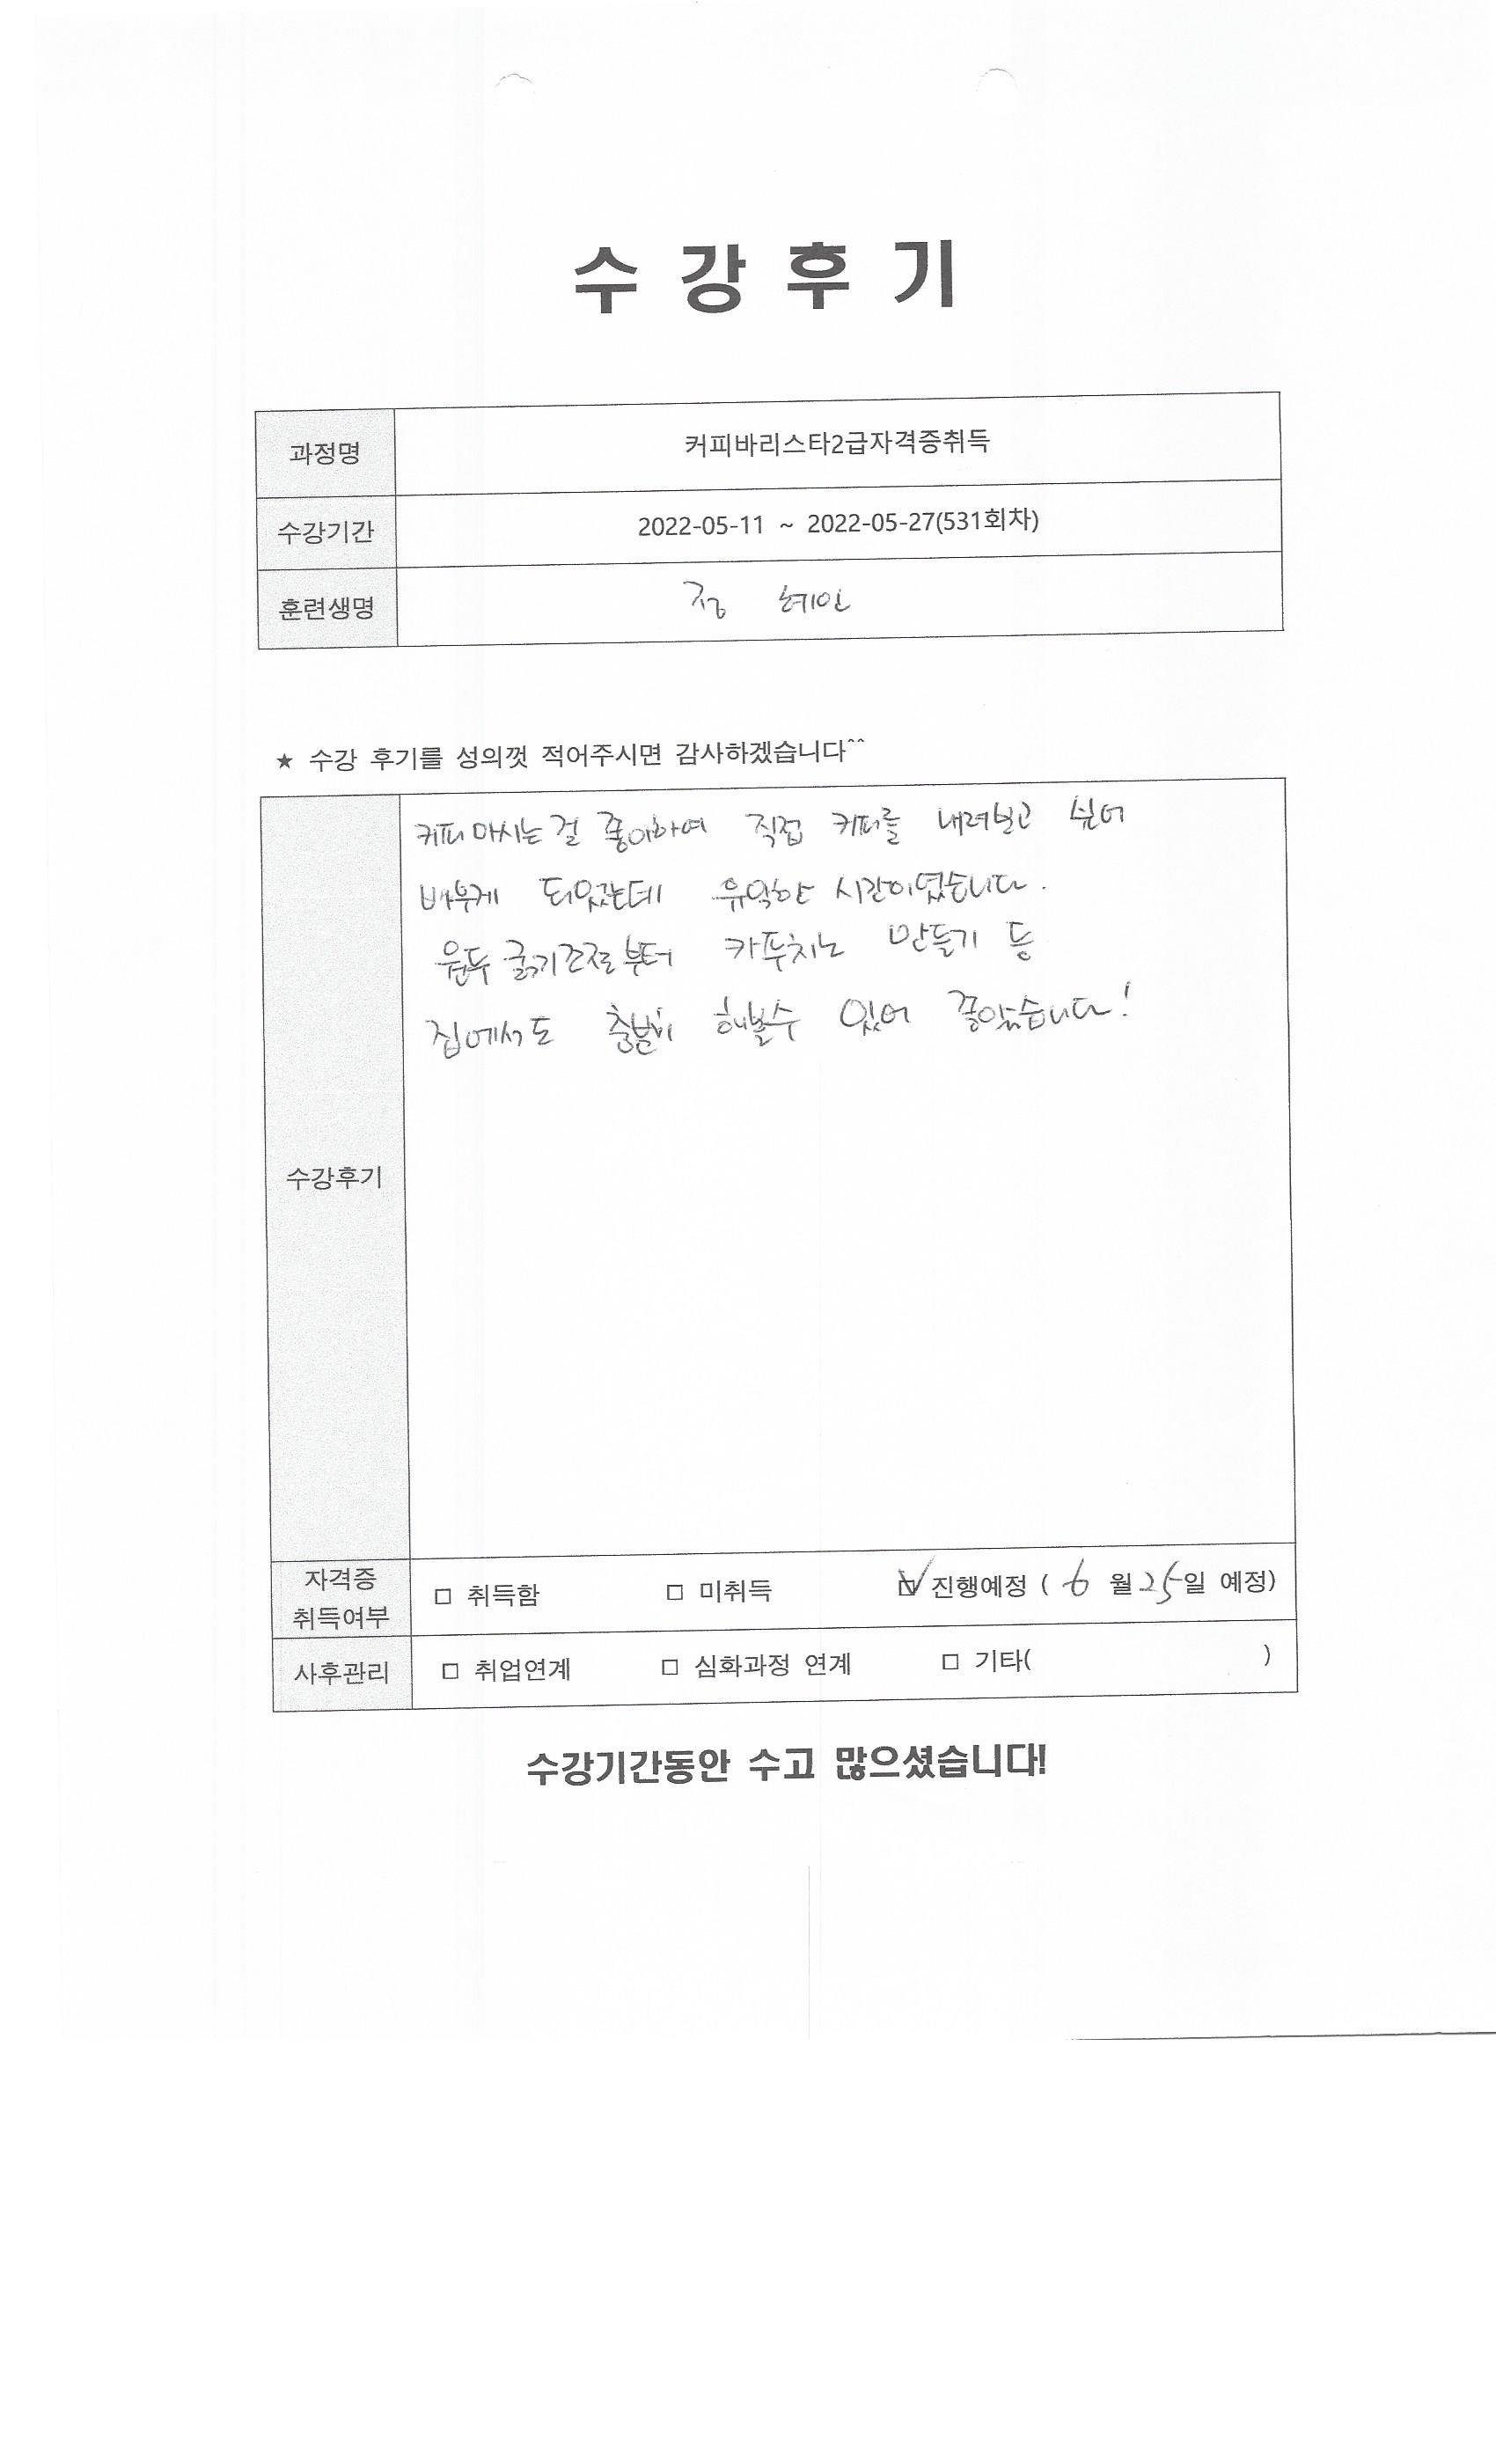 수강후기
과정명 커피바리스타2급자격증취득
수강기간 2022-05-11 ~ 2022-05-27(531회차)
훈련생명 정 혜인
★ 수강 후기를 성의껏 적어주시면 감사하겠습니다^^
커피 마시는걸 좋아하여 직접 커피를 내려보고 싶어
배우게 되었는데 유익한 시간이었습니다.
원두 굵기조절부터 카푸치노 만들기 등
집에서도 충분히 해볼수 있어 좋았습니다!
수강후기
자격증
취득여부 □ 취득함 □ 미취득 ☑ 진행예정 ( 6 월 25일 예정)
사후관리 □ 취업연계 □ 심화과정 연계 □ 기타( )
수강기간동안 수고 많으셨습니다!